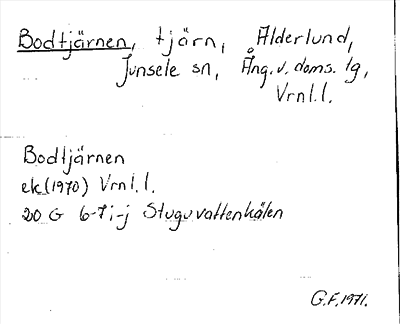 Bodtjärnen, tjärn, Ålderlund,
Junsele sn, Ång. v. doms. lg,
Vrnl.l.
Bodtjärnen
ek(1970) Vrnl.l.
20 G 6-7 i-j Stuguvattenkälen
G.F. 1971.